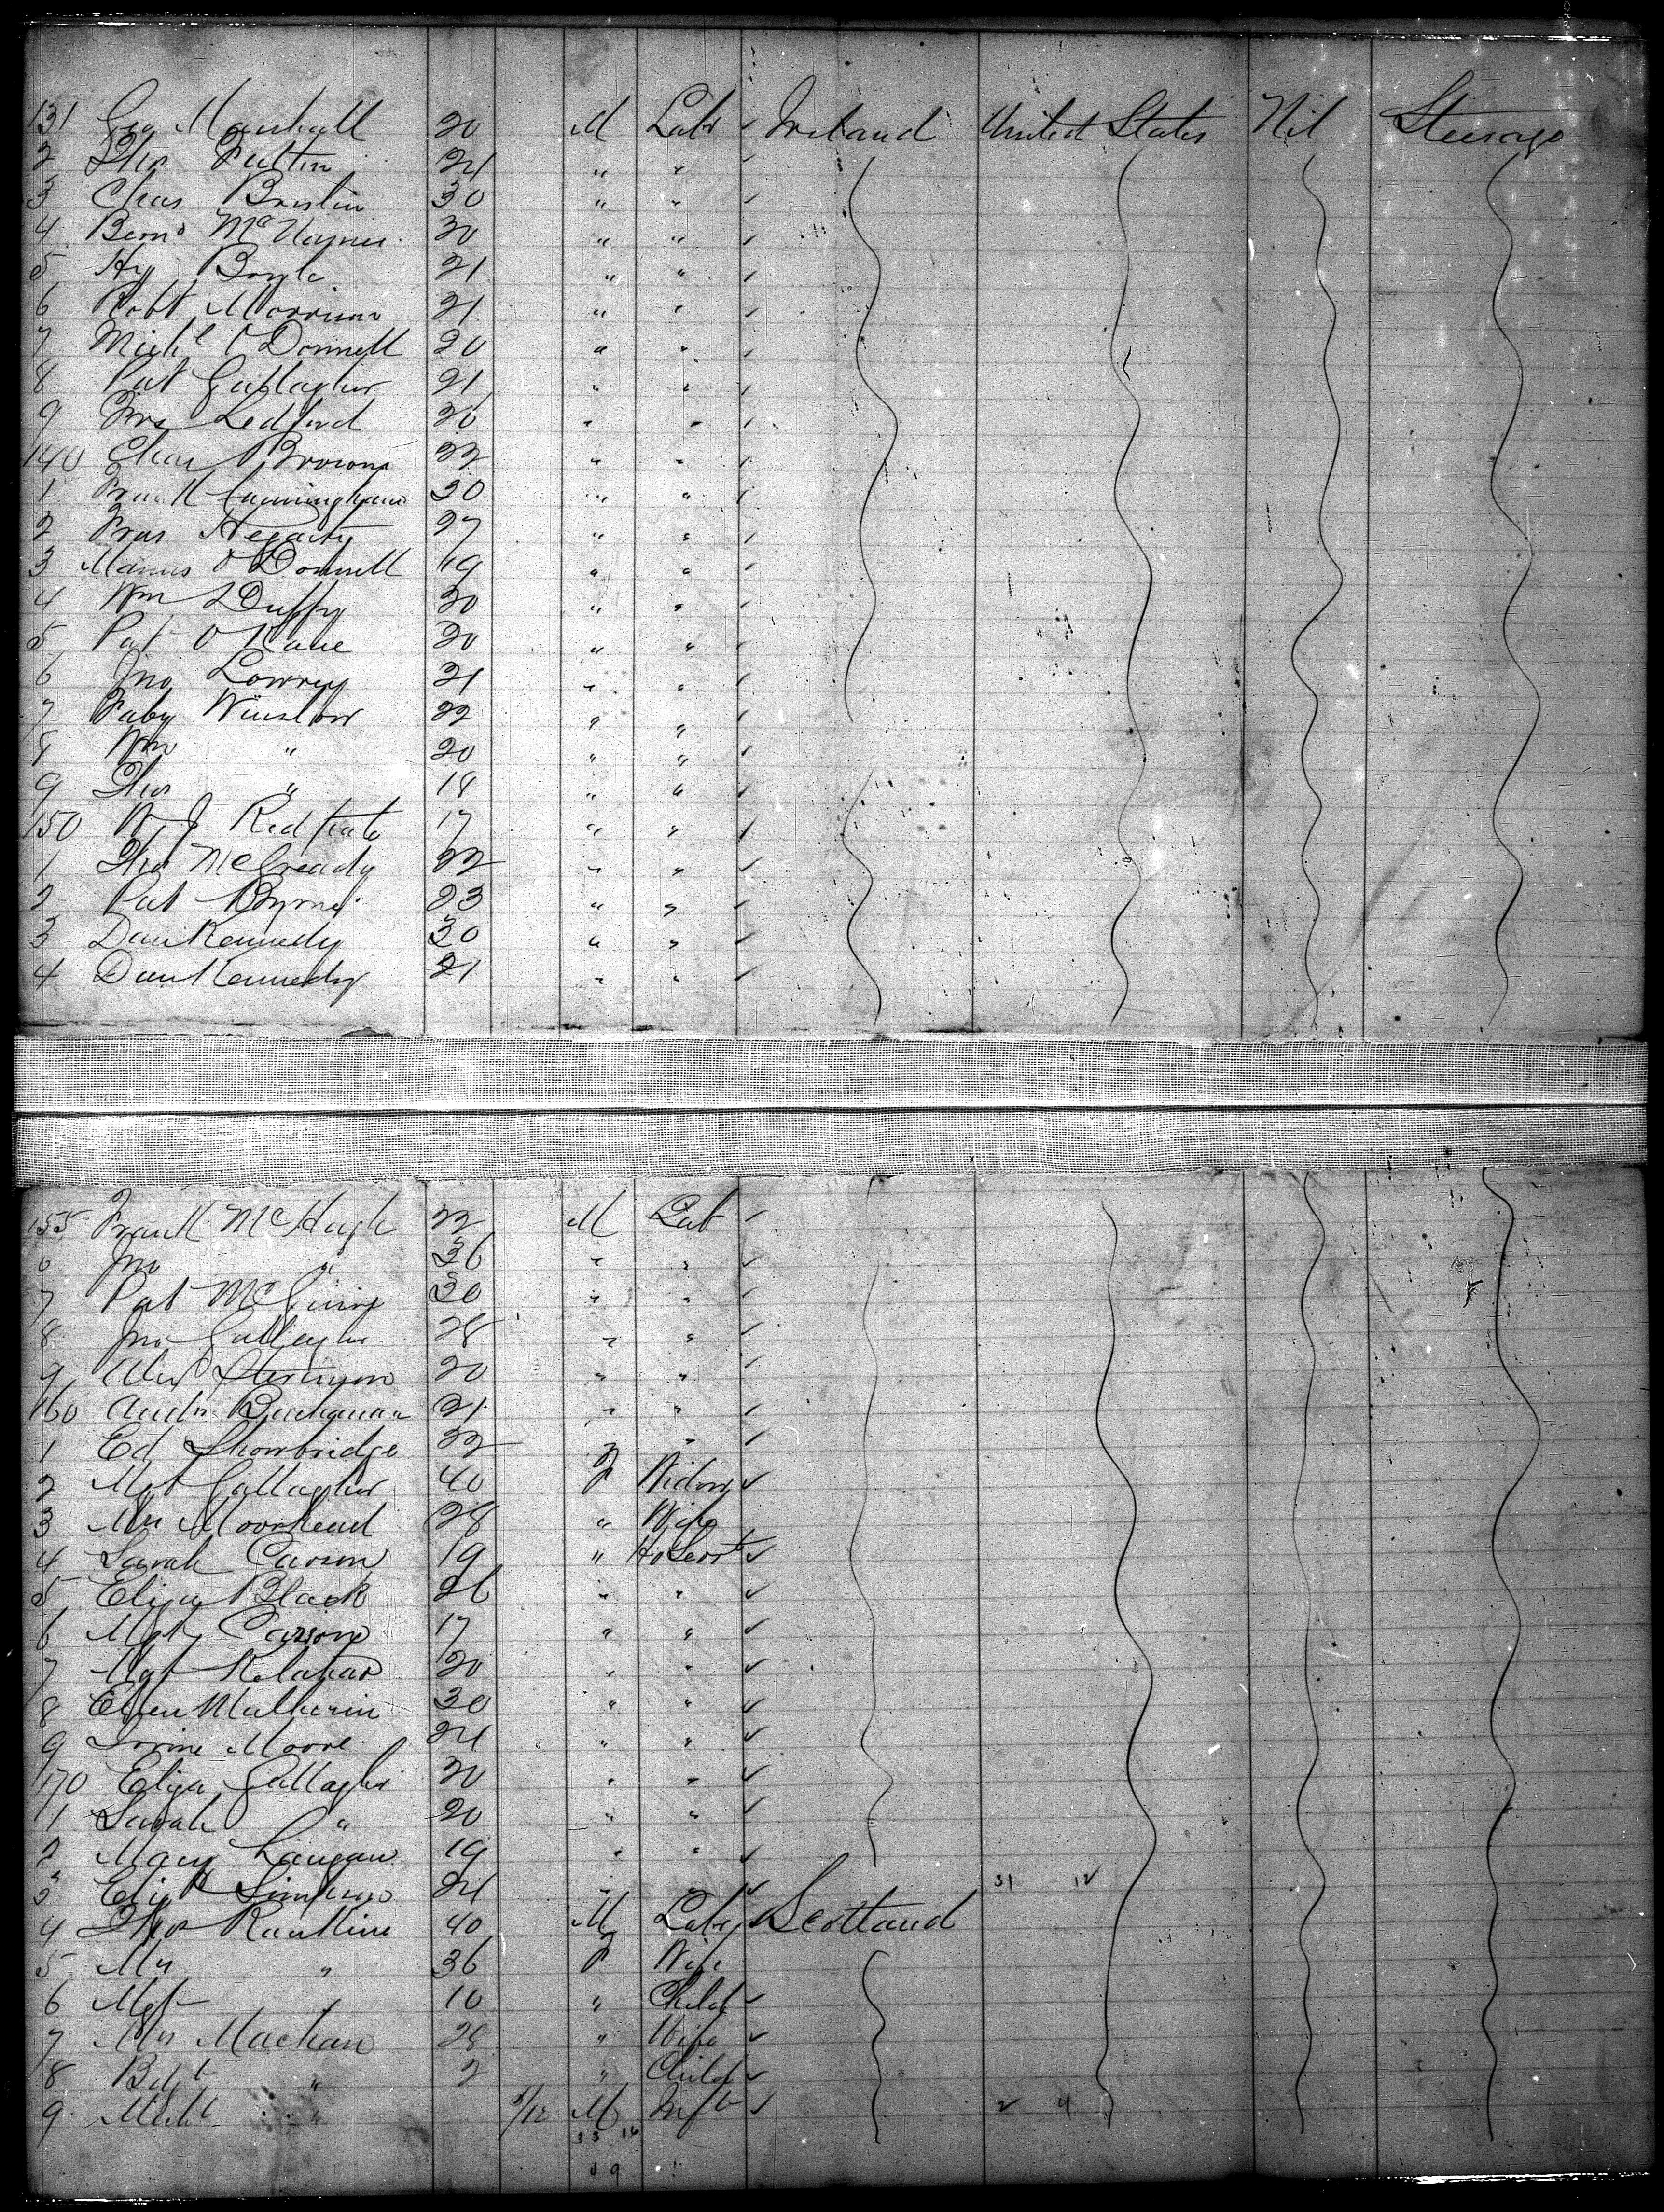 131 Geo Marshall 20 M Labr ✓ Ireland United States Nil Steerage
2 Thos Fulton 24 " " ✓
3 Chas Breslin 30 " " ✓
4 Bernd 30 " " ✓
5 Hy Boyle 21 " " ✓
6 Robt Morrison 21 " " ✓
7 Michl O'Donnell 20 " " ✓
8 Pat Gallagher 21 " " ✓
9 Ledford " " ✓
140 Chas Brown 22 " " ✓
1 Frank Cunningham 30 " " ✓
2 Fras Hegarty 27 " " ✓
3 Manus O'Donnell 19 " " ✓
4 Wm Duffy 30 " " ✓
5 Pat O'Kane 20 " " ✓
6 Jno Lowrey 21 " " ✓
7 Faby Winslow 22 " " ✓
8 Wm " 20 " " ✓
9 Thos " 18 " " ✓
150 W J 17 " " ✓
1 Thos McCready 22 " " ✓
2 Pat Byrne 23 " " ✓
3 Dan Kennedy 30 " " ✓
4 Dan Kennedy 21 " " ✓
155 Frank McHugh 22 M Lab ✓
6 Jno " 36 " " ✓
7 Pat 30 " " ✓
8 Jno Gallagher 28 " " ✓
9 Alex 20 " " ✓
160 Andw Buchanan 21 " " ✓
1 Ed Showbridge 22 " " ✓
2 Mgt Gallagher 40 F Widow ✓
3 Mrs Moorhead 28 " Wife
4 Sarah Carson 19 " Ho Servt ✓
5 Eliza Black 26 " " ✓
6 Mgt Carson 17 " " ✓
7 Mgt 20 " " ✓
8 Ellen Mulherin 30 " " ✓
9 Moore 24 " " ✓
170 Eliza Gallagher 30 " " ✓
1 Sarah " 20 " " ✓
2 Mary Langan 19 " " ✓
3 Elizth 24 " " ✓ 31 12
4 Thos Rankine 40 M Labr ✓ Scotland
5 Mrs " 36 F Wife
6 Mgt " 10 " Child ✓
7 Mrs Machan 28 " Wife ✓
8 " 2 " Child ✓
9 " M Inft ✓ 2 4
33 16